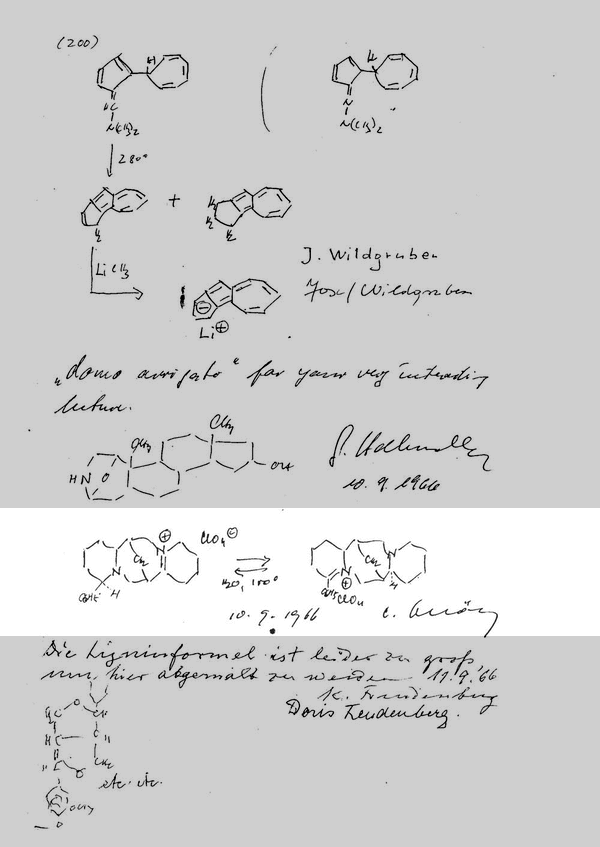 (200)
H
HC
N(CH3)2
H
N
N(CH3)2
280°
+
H2
H2
H2
H2
LiCH3
J. Wildgruber
Josef Wildgruber
⊖
Li⊕
"domo arrigato" for your very interesting
lecture.
CH3
CH3
HN O
OH
10. 9. 1966
⊕
N
ClO4⊖
CH2
N
H
H2O, 100°
CH2
N
N
⊕
ClO4
H
10. 9. 1966
Die Ligninformel ist leider zu groß
um hier abgemalt zu werden 11.9.'66
K. Freudenberg
Doris Freudenberg.
O
CH
H2C
HC
CH
HC
O
CH2
etc. etc.
OCH3
O